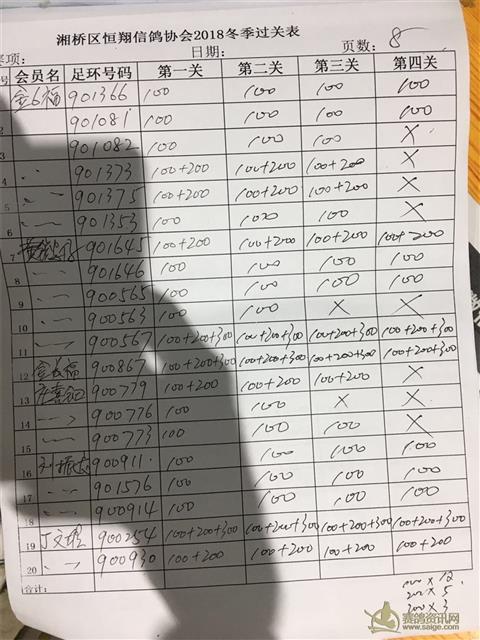 湘桥区恒翔信鸽协会2018冬季过关表
项: 日期: 页数: 8
号 会员名 足环号码 第一关 第二关 第三关 第四关
金长福 901366 100 100 100 100
2 901081 100 100 100 100
3 901082 100 100 100 ×
4 901373 100+200 100+200 100+200 ×
5 901375 100+200 100+200 100+200 ×
6 901353 100 100 100 ×
7 901645 100+200 100+200 100+200 100+200
8 901646 100 100 100 100
9 900565 100 100 100 100
10 900563 100 100 × ×
11 900567 100+200+300 100+200+300 100+200+300 100+200+300
12 金长福 900867 100+200+300 100+200+300 100+200+300 100+200+300
13 900779 100+200 100+200 100+200 ×
14 900776 100 100 × ×
15 900773 100 100 100 ×
16 900911 100 100 100 100
17 901576 100 100 100 100
18 900914 100 100 100 100
19 900254 100+200+300 100+200+300 100+200+300 100+200+300
20 900930 100+200 100+200 100+200 100+200
合计:
100×12
200×5
300×3
赛鸽资讯网
www.saige.com